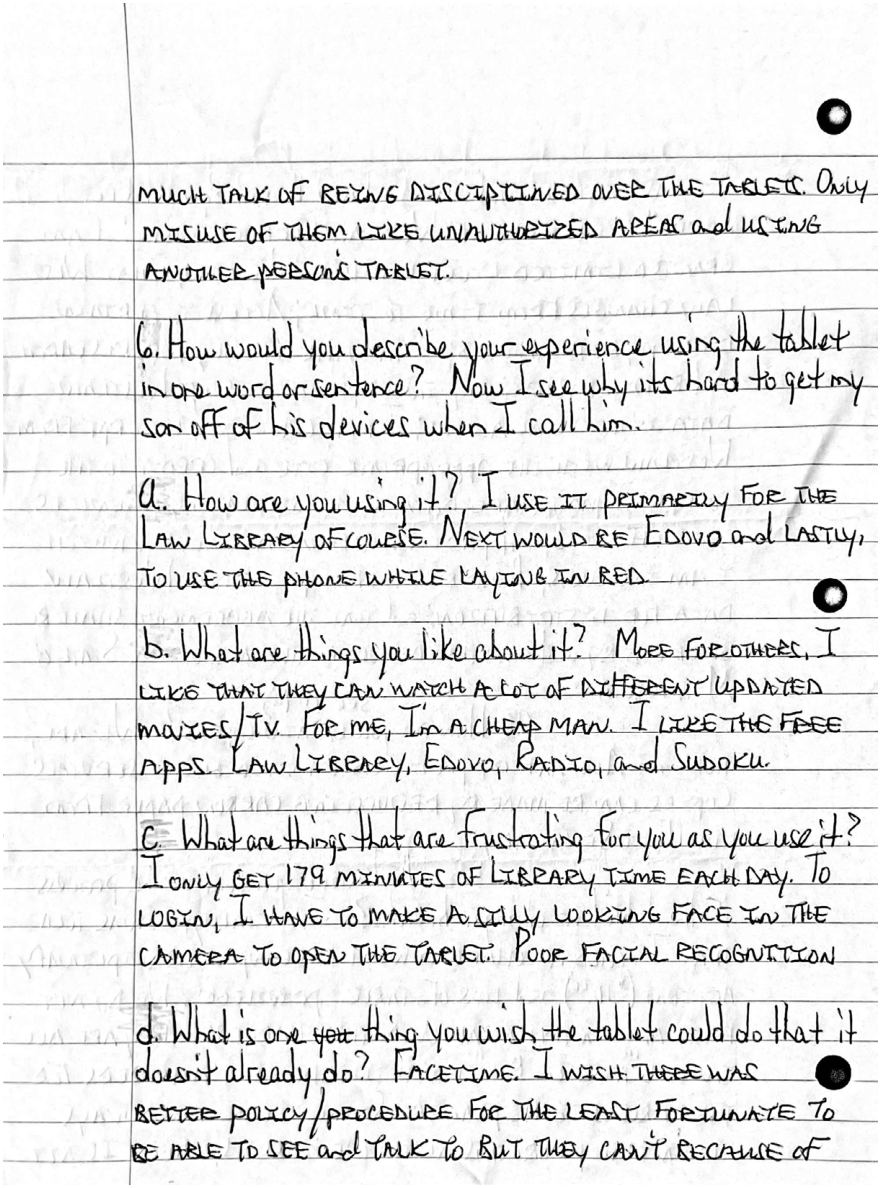 MUCH TALK OF BEING DISCIPTINED OVER THE TABLETS. Only
MISUSE OF THEM LIKE UNAUTHORIZED AREAS and USING
ANOTHER PERSON'S TABLET.
6. How would you describe your experience using the tablet
in one word or sentence? Now I see why its hard to get my
son off of his devices when I call him.
a. How are you using it? I USE IT PRIMARILY FOR THE
LAW LIBRARY OFCOURSE. NEXT WOULD BE EDOVO and LASTLY,
TO USE THE PHONE WHILE LAYING IN BED.
b. What are things you like about it? MORE FOR OTHERS, I
LIKE THAT THEY CAN WATCH A LOT OF DIFFERENT UPDATED
MOVIES/TV. FOR ME, I'm A CHEAP MAN. I LIKE THE FREE
APPS. LAW LIBRARY, EDOVO, RADIO, and SUDOKU.
C. What are things that are frustrating for you as you use it?
I ONLY GET 179 MINUTES OF LIBRARY TIME EACH DAY. TO
LOGIN, I HAVE TO MAKE A SILLY LOOKING FACE IN THE
CAMERA TO OPEN THE TABLET. POOR FACIAL RECOGNITION
d. What is one you thing you wish the tablet could do that it
doesn't already do? FACETIME. I WISH THERE WAS
BETTER POLICY/PROCEDURE FOR THE LEAST FORTUNATE TO
BE ABLE TO SEE and TALK TO BUT THEY CAN'T BECAUSE OF